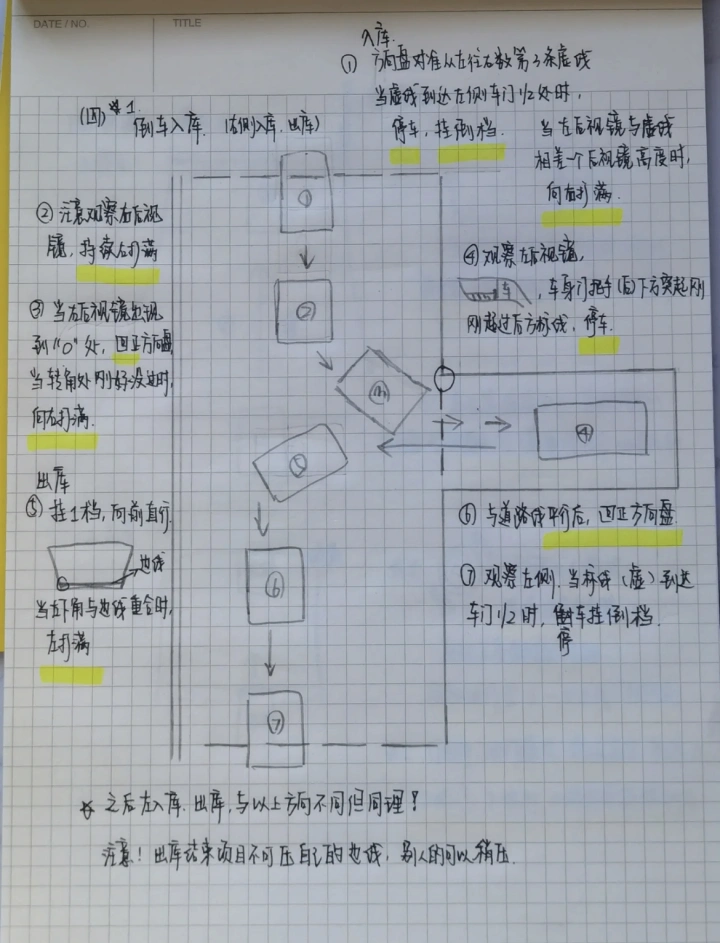 DATE / NO.
TITLE
入库.
① 方向盘对准从左往右数第3条虚线
当虚线到达左侧车门1/2处时,
停车, 挂倒档.
当左后视镜与虚线
相差一个后视镜高度时,
向右打满.
(四) *1.
倒车入库. (右侧入库.出库)
② 注意观察右后视
镜, 持续右打满
③ 当右后视镜出现
到"0"处, 回正方向盘
当转角处刚好没边时,
向右打满.
④ 观察左后视镜,
车
, 车身门把手(后)下方突起刚
刚超过后方标线, 停车.
①
②
③
④
⑤
⑥
⑦
出库
⑤ 挂1档, 向前直行
边线
当左下角与边线重合时,
左打满
⑥ 与道路线平行后, 回正方向盘
⑦ 观察左侧. 当标线(虚)到达
车门1/2时, 停车挂倒档.
* 之后左入库.出库, 与以上方向不同但同理?
注意! 出库结束项目不可压自己的边线, 别人的可以稍压.